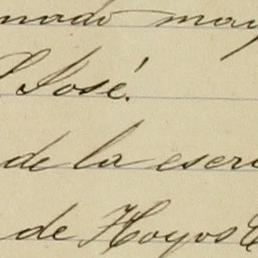 nado may
José.
de la escri
de Hoyos